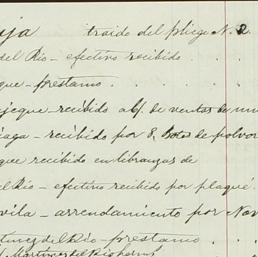 ja traido del pliego N. 2
del Rio - efectivo recibido
que - prestamo
jeque - recibido a/c de ventas de
aga - recibido por 8 de polvor
que recibido en libranzas de
el Rio - efectivo recibido por plaqué
vila - arrendamiento por Nov
tinez del Rio prestamo